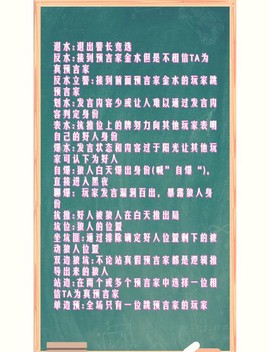 退水：退出警长竞选
反水：接到预言家金水但是不相信TA为
真预言家
反水立警：接到前面预言家金水的玩家跳
预言家
划水：发言内容少或让人难以通过发言内
容判定身份
表水：抗推位上的牌努力向其他玩家表明
自己的好人身份
爆水：发言状态和内容过于阳光让其他玩
家可认下为好人
自爆：狼人白天爆出身份（喊”自爆“），
直接进入黑夜
聊爆：玩家发言漏洞百出，暴露狼人身
份
抗推：好人被狼人在白天推出局
坑位：狼人的位置
坐坑圆：通过排除确定好人位置剩下的被
动狼人位置
双边狼坑：不论站真假预言家都是逻辑推
导出来的狼人
站边：在两个或多个预言家中选择一位相
信TA为真预言家
单边预：全场只有一位跳预言家的玩家